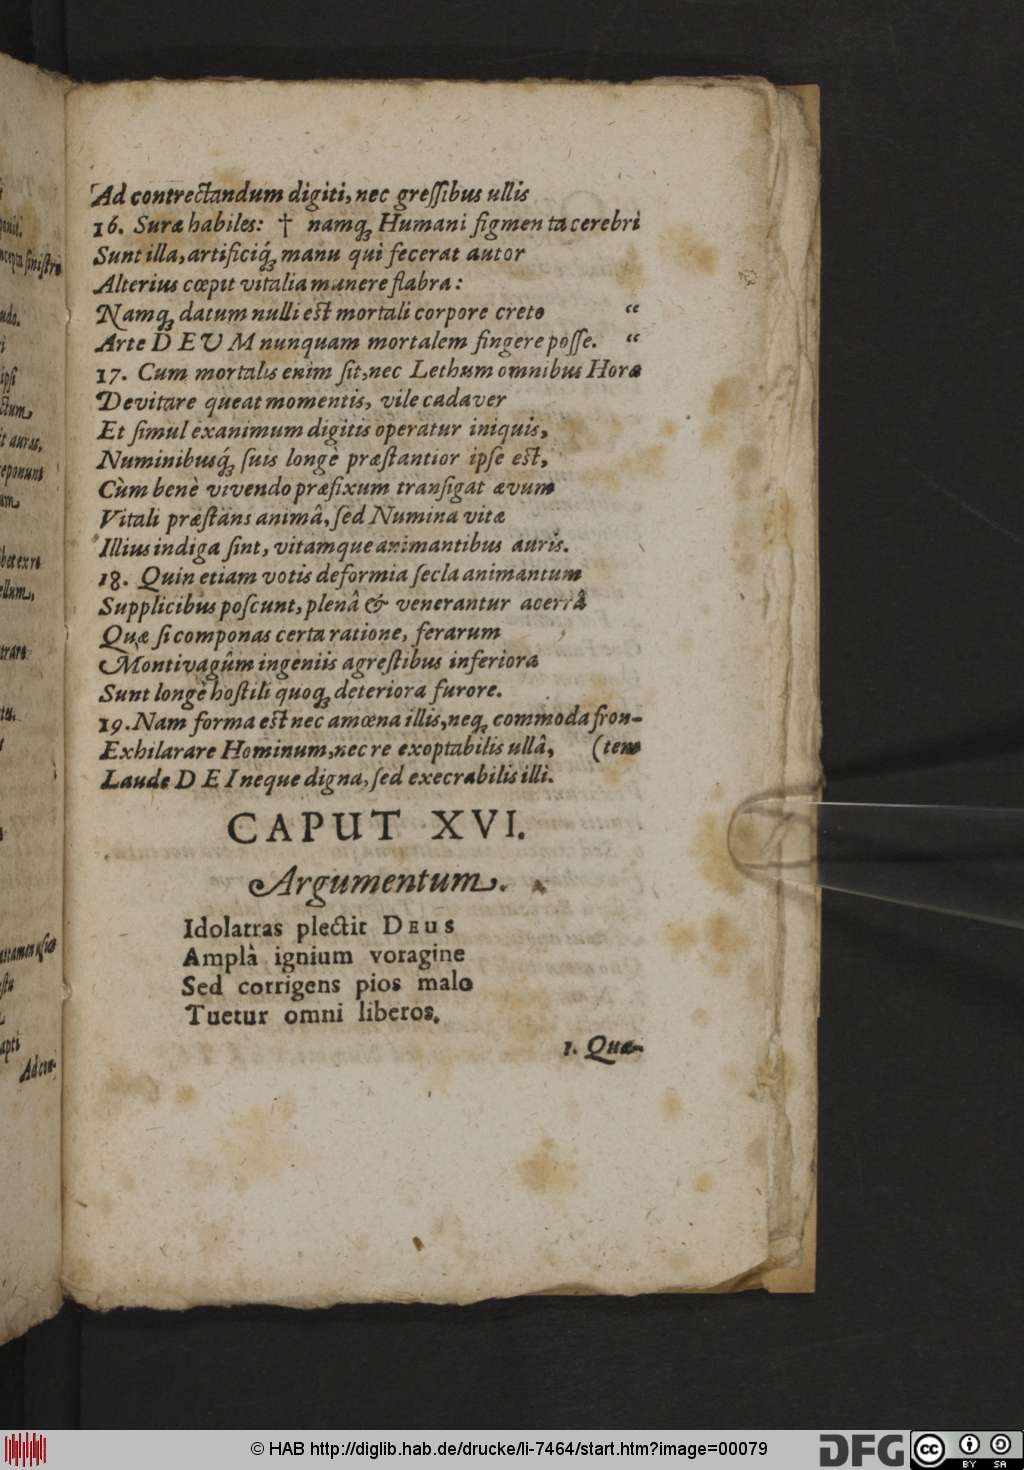 Ad contrectandum digiti, nec greſſibus ullis
16. Suræ habiles: † namq́; Humani figmenta cerebri
Sunt illa, artificiq́; manu qui fecerat autor
Alterius cœpit vitalia munere flabra:
Namq́; datum nulli est mortali corpore creto “
Arte DEUM nunquam mortalem fingere poſſe. “
17. Cum mortalis enim ſit, nec Lethum omnibus Horæ
Devitare queat momentis, vile cadaver
Et ſimul exanimum digitis operatur iniquis,
Numinibusq́; ſuis longè præſtantior ipſe est,
Cùm benè vivendo præfixum tranſigat ævum
Vitali præſtans animâ, ſed Numina vitæ
Illius indiga ſint, vitamque animantibus auris.
18. Quin etiam votis deformia ſecla animantum
Supplicibus poſcunt, plenâ & venerantur acerrâ
Quæ ſi componas certa ratione, ferarum
Montivagûm ingeniis agreſtibus inferiora
Sunt longè hoſtili quoq́; deteriora furore.
19. Nam forma est nec amœna illis, neq, commoda fron-
Exhilarare Hominum, nec re exoptabilis ullâ, (tem
Laude DEI neque digna, ſed execrabilis illi.
CAPUT XVI.
Argumentum.
Idolatras plectit DEUS
Amplà ignium voragine
Sed corrigens pios malo
Tuetur omni liberos.
1. Quæ-
© HAB http://diglib.hab.de/drucke/li-7464/start.htm?image=00079
DFG
cc BY SA